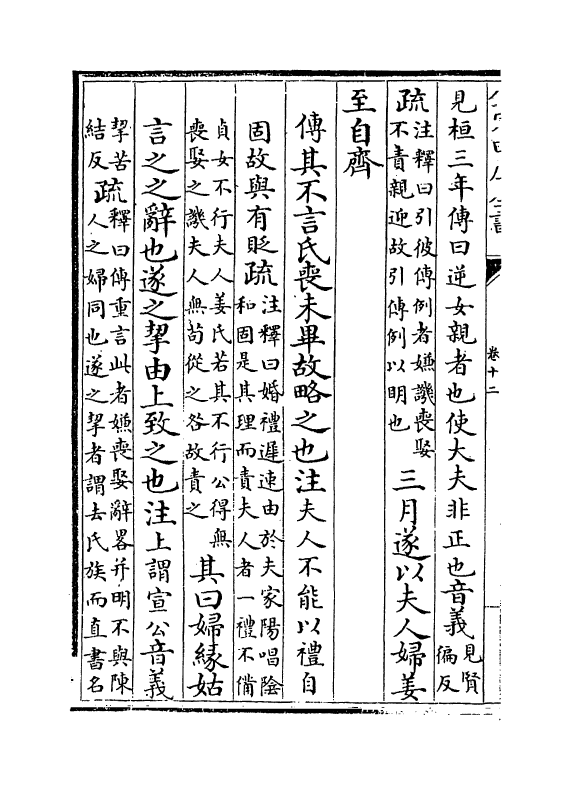 卷十二
見桓三年傳曰逆女親者也使大夫非正也音義見賢
徧反
疏注釋曰引彼傳例者嫌譏喪娶
不責親迎故引傳例以明也
三月遂以夫人婦姜
至自齊
傳其不言氏喪未畢故略之也注夫人不能以禮自
固故與有貶疏注釋曰婚禮遲速由於夫家陽唱陰
和固是其理而責夫人者一禮不備
貞女不行夫人姜氏若其不行公得無
喪娶之譏夫人無苟從之咎故責之
其曰婦緣姑
言之之辭也遂之挈由上致之也注上謂宣公音義
挈苦
結反
疏釋曰傳重言此者嫌喪娶辭畧并明不與陳
人之婦同也遂之挈者謂去氏族而直書名